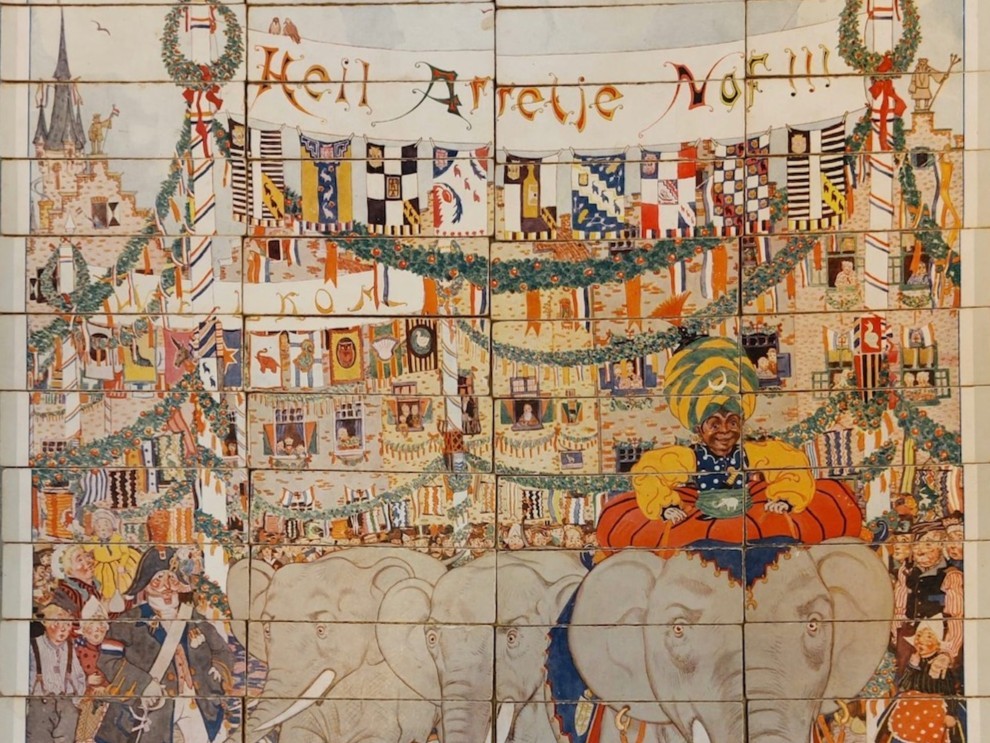 Heil Arretje Nof!!!
WELKOM